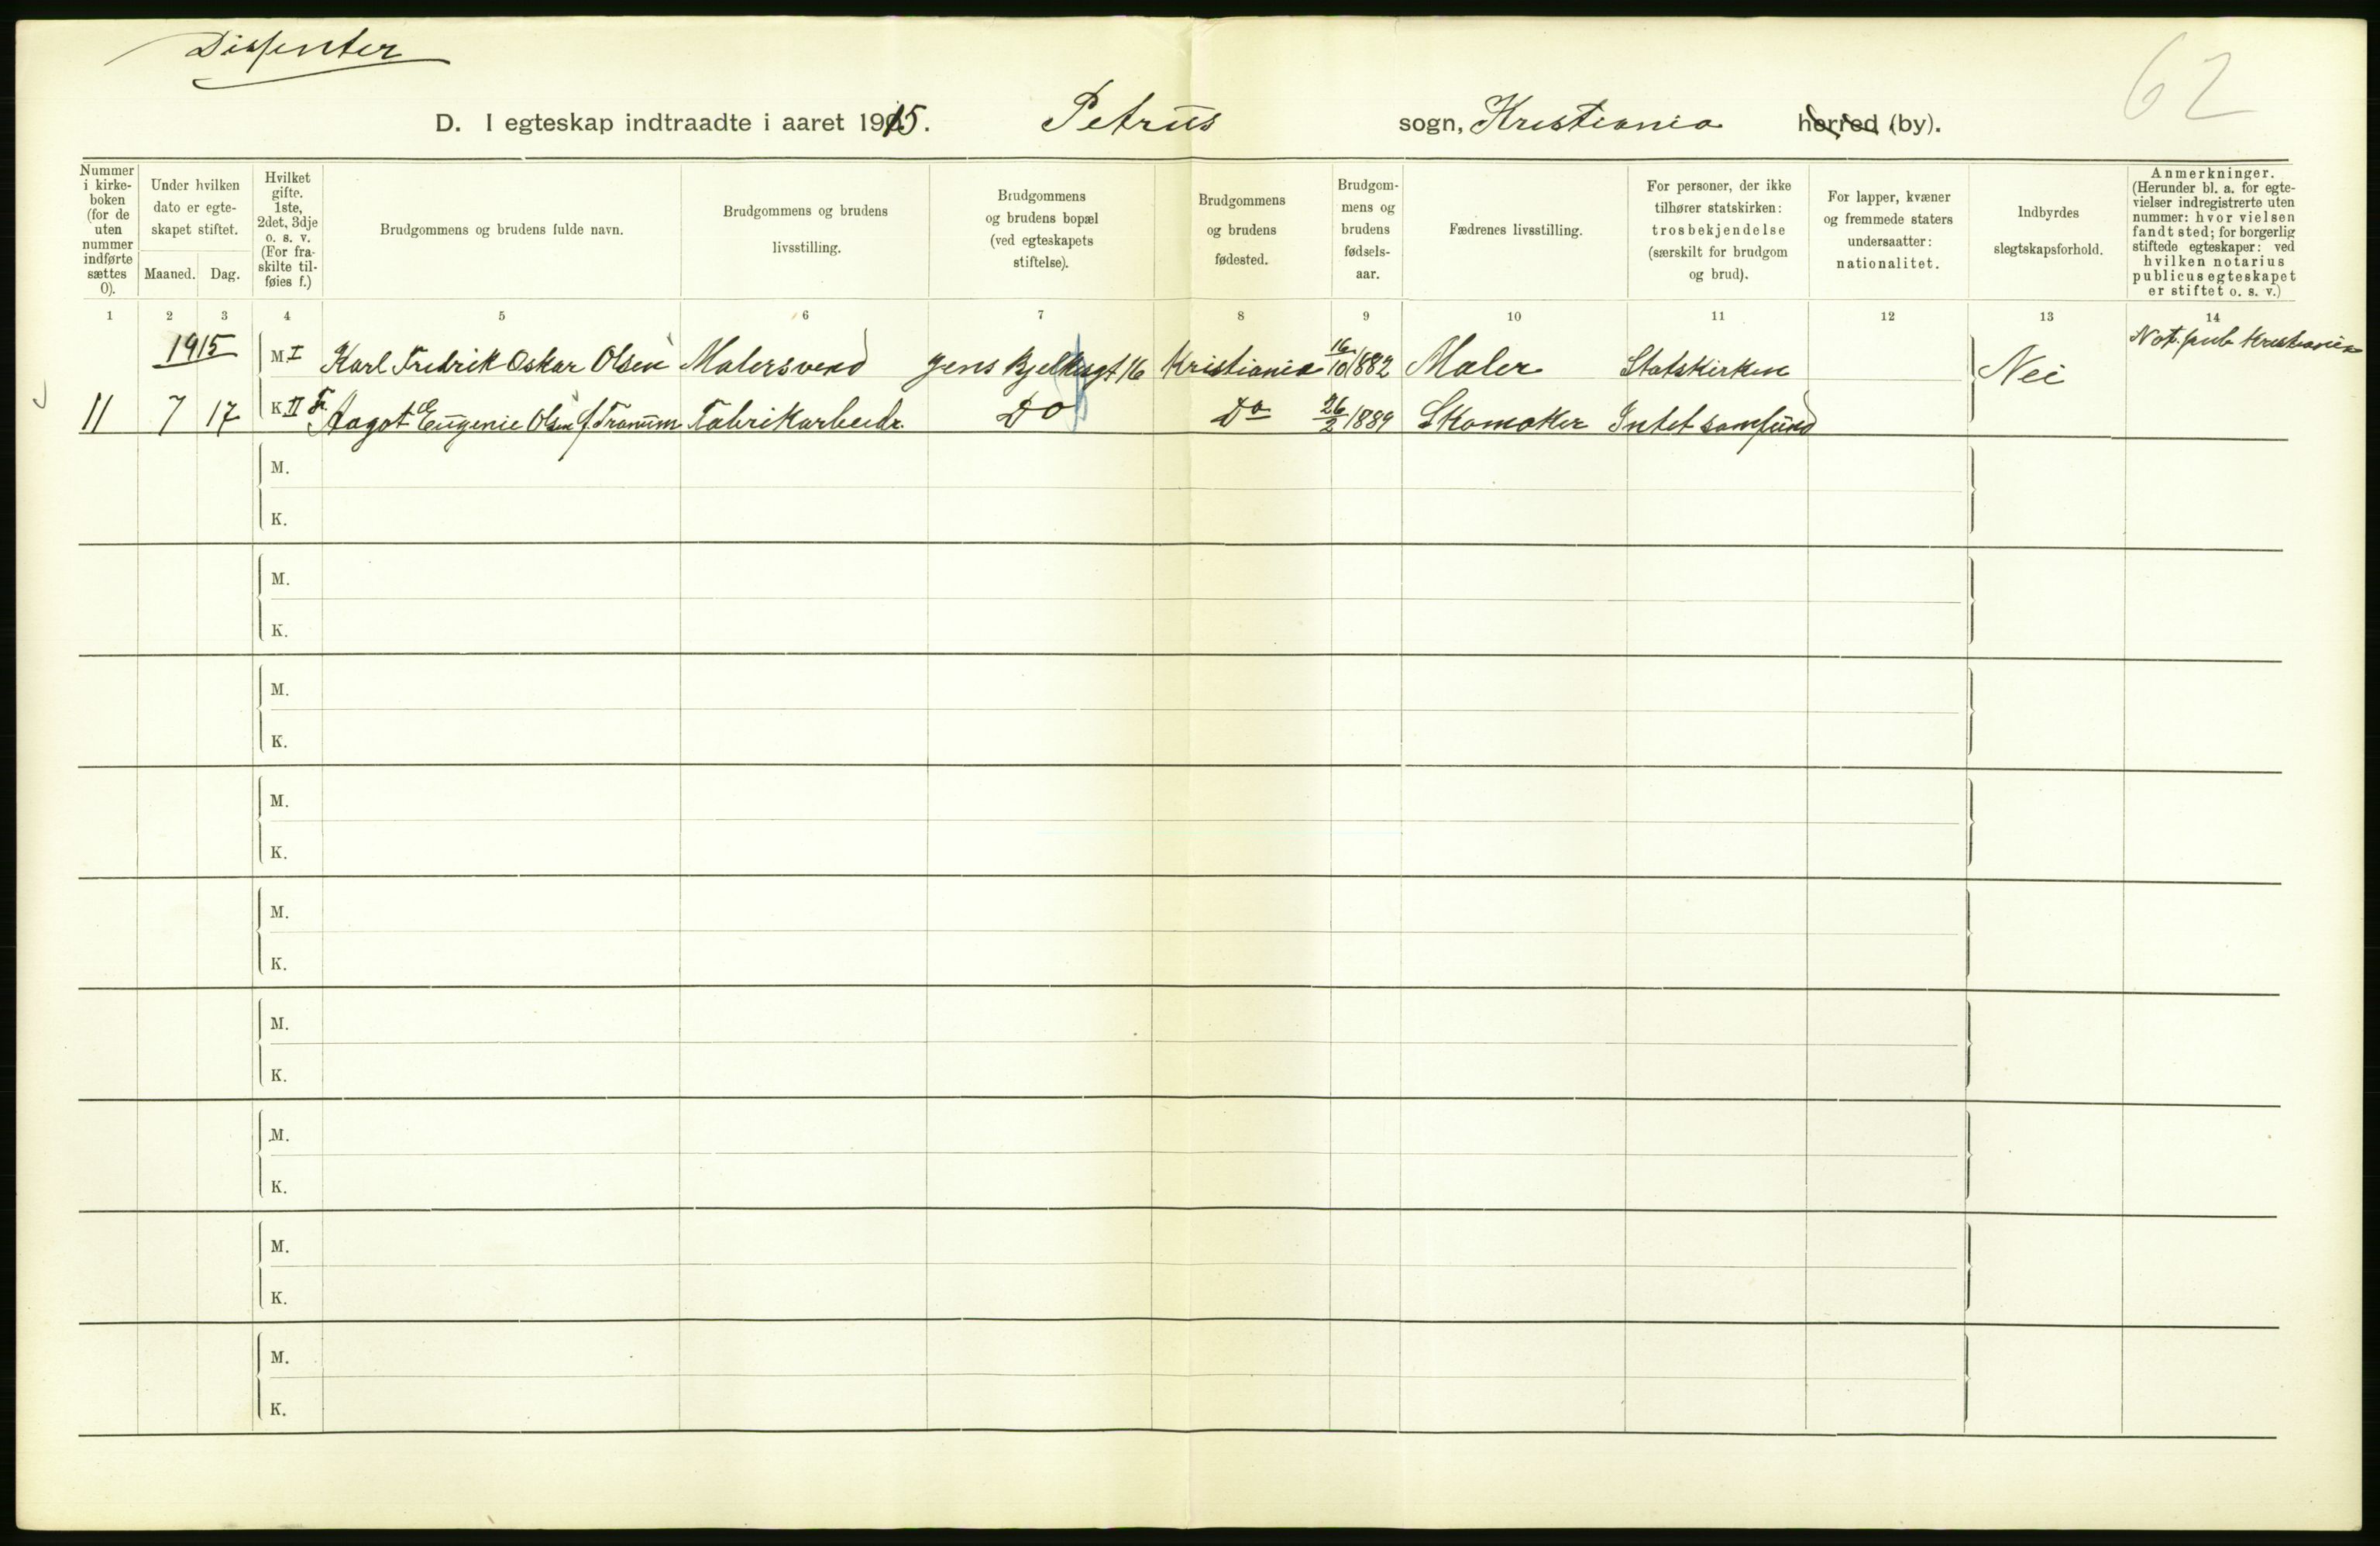 Dissenter
62
D. I egteskap indtraadte i aaret 1915. Petrus sogn, Kristiania herred (by).
Nummer i kirkeboken (for de uten nummer indførte sættes 0).
Under hvilken dato er egteskapet stiftet.
Maaned. Dag.
Hvilket gifte. 1ste, 2det, 3dje o. s. v. (For fraskilte tilføies f.)
Brudgommens og brudens fulde navn.
Brudgommens og brudens livsstilling.
Brudgommens og brudens bopæl (ved egteskapets stiftelse).
Brudgommens og brudens fødested.
Brudgommens og brudens fødselsaar.
Fædrenes livsstilling.
For personer, der ikke tilhører statskirken: trosbekjendelse (særskilt for brudgom og brud).
For lapper, kvæner og fremmede staters undersaatter: nationalitet.
Indbyrdes slegtskapsforhold.
Anmerkninger. (Herunder bl. a. for egtevielser indregistrerte uten nummer: hvor vielsen fandt sted; for borgerlig stiftede egteskaper: ved hvilken notarius publicus egteskapet er stiftet o. s. v.)
1 2 3 4 5 6 7 8 9 10 11 12 13 14
1915 M I Karl Fredrik Oskar Olsen Malersvend Jens Bjelkesgt 16 Kristiania 16/10 1882 Maler Statskirken Nei Not. pub. Kristiania
11 7 17 K II Fr. Aagot Eugenie Olsen f. Tranum Fabrikarbeidr. Do Do 26/2 1889 Skomaker Intet samfund
M.
K.
M.
K.
M.
K.
M.
K.
M.
K.
M.
K.
M.
K.
M.
K.
M.
K.